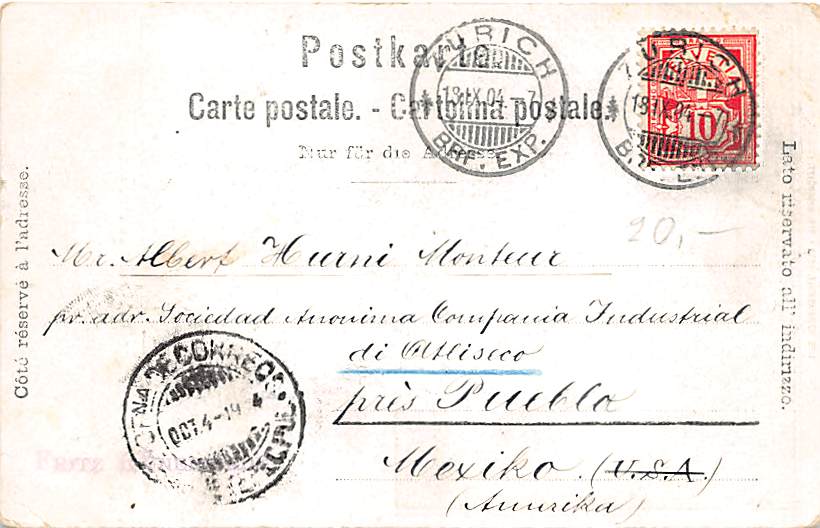 Postkarte
Carte postale. - Cartolina postale.
Nur für die Adresse
Côté réservé à l'adresse.
Lato riservato all' indirizzo.
ZÜRICH
18.IX.04.-7
BRF. EXP.
HELVETIA
10
18.IX.04.-7
20,-
Mr. Albert Hurni Monteur
pr. adr. Sociedad Anonima Compania Industrial
di Atliseco
près Puebla
Mexiko. (U.S.A.)
(Amerika)
DE CORREOS
OCT. 4-19 4
FRITZ